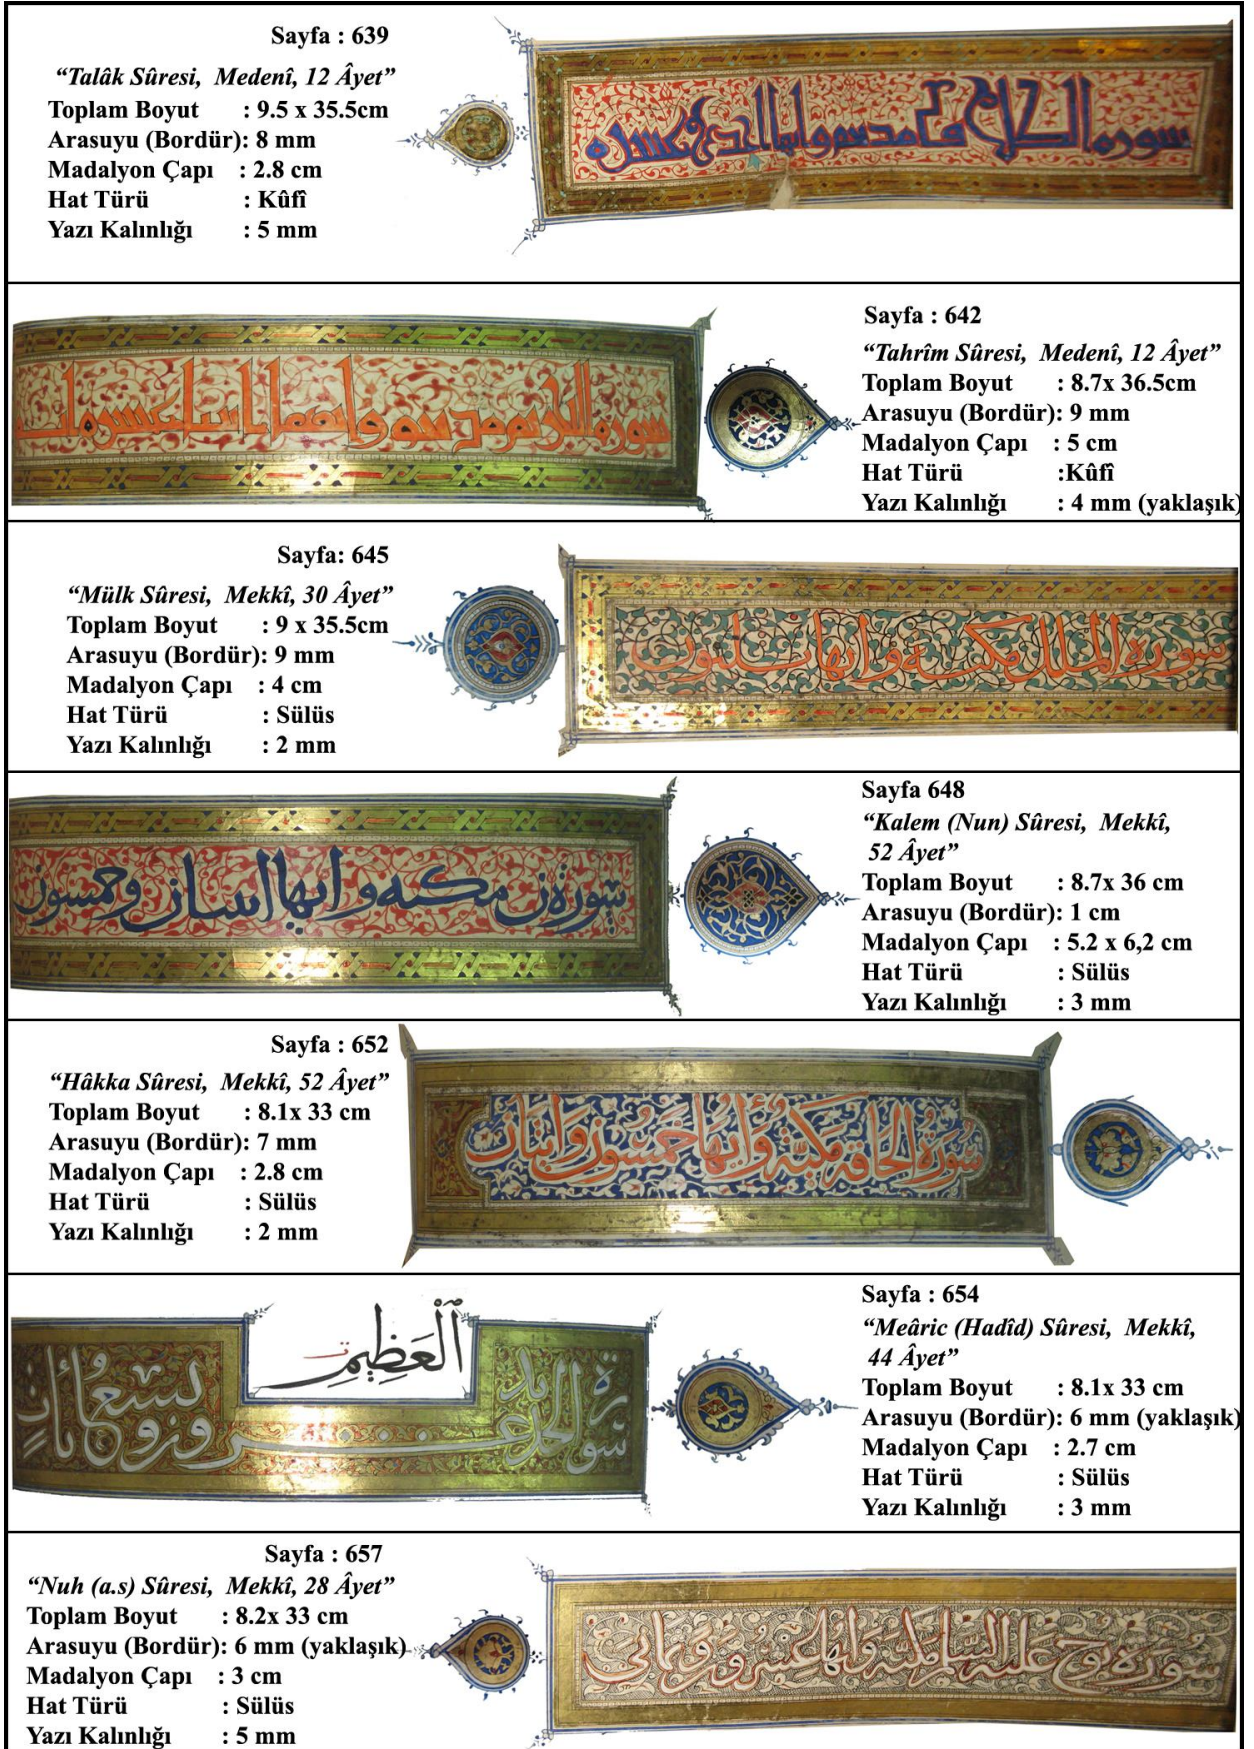 Sayfa : 639
“Talâk Sûresi, Medenî, 12 Âyet”
Toplam Boyut : 9.5 x 35.5cm
Arasuyu (Bordür): 8 mm
Madalyon Çapı : 2.8 cm
Hat Türü : Kûfî
Yazı Kalınlığı : 5 mm
Sayfa : 642
“Tahrîm Sûresi, Medenî, 12 Âyet”
Toplam Boyut : 8.7x 36.5cm
Arasuyu (Bordür): 9 mm
Madalyon Çapı : 5 cm
Hat Türü :Kûfî
Yazı Kalınlığı : 4 mm (yaklaşık)
Sayfa: 645
“Mülk Sûresi, Mekkî, 30 Âyet”
Toplam Boyut : 9 x 35.5cm
Arasuyu (Bordür): 9 mm
Madalyon Çapı : 4 cm
Hat Türü : Sülüs
Yazı Kalınlığı : 2 mm
سورة الملك مكية وايها ثلثون
Sayfa 648
“Kalem (Nun) Sûresi, Mekkî,
52 Âyet”
Toplam Boyut : 8.7x 36 cm
Arasuyu (Bordür): 1 cm
Madalyon Çapı : 5.2 x 6,2 cm
Hat Türü : Sülüs
Yazı Kalınlığı : 3 mm
سورة ن مكية وايها اثنان وخمسون
Sayfa : 652
“Hâkka Sûresi, Mekkî, 52 Âyet”
Toplam Boyut : 8.1x 33 cm
Arasuyu (Bordür): 7 mm
Madalyon Çapı : 2.8 cm
Hat Türü : Sülüs
Yazı Kalınlığı : 2 mm
سورة الحاقة مكية وايها خمسون واثنتان
Sayfa : 654
“Meâric (Hadîd) Sûresi, Mekkî,
44 Âyet”
Toplam Boyut : 8.1x 33 cm
Arasuyu (Bordür): 6 mm (yaklaşık)
Madalyon Çapı : 2.7 cm
Hat Türü : Sülüs
Yazı Kalınlığı : 3 mm
الْعَظِيمِ
سورة الحديد عشرون وتسع ايات
Sayfa : 657
“Nuh (a.s) Sûresi, Mekkî, 28 Âyet”
Toplam Boyut : 8.2x 33 cm
Arasuyu (Bordür): 6 mm (yaklaşık)
Madalyon Çapı : 3 cm
Hat Türü : Sülüs
Yazı Kalınlığı : 5 mm
سورة نوح عليه السلام مكية وايها عشرون وثماني